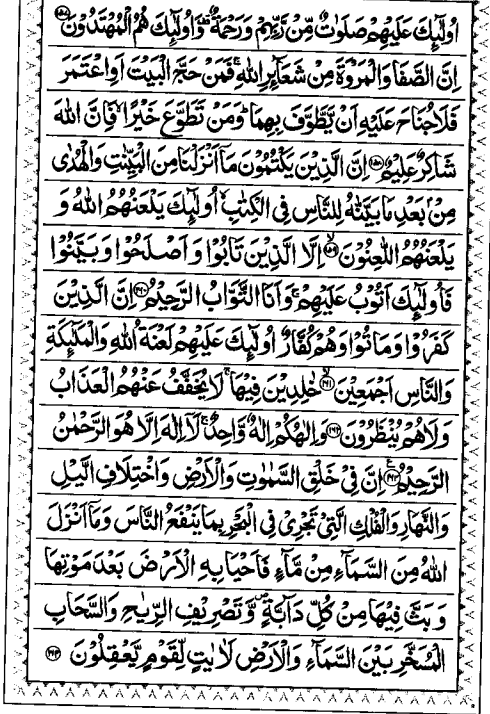 اُولٰٓئِكَ عَلَيْهِمْ صَلَوٰتٌ مِّنْ رَّبِّهِمْ وَرَحْمَةٌ ۟ وَاُولٰٓئِكَ هُمُ الْمُهْتَدُوْنَ
اِنَّ الصَّفَا وَالْمَرْوَةَ مِنْ شَعَآئِرِ اللّٰهِ ۚ فَمَنْ حَجَّ الْبَيْتَ اَوِ اعْتَمَرَ
فَلَا جُنَاحَ عَلَيْهِ اَنْ يَّطَّوَّفَ بِهِمَا ؕ وَمَنْ تَطَوَّعَ خَيْرًا ۙ فَاِنَّ اللّٰهَ
شَاكِرٌ عَلِيْمٌ اِنَّ الَّذِيْنَ يَكْتُمُوْنَ مَاۤ اَنْزَلْنَا مِنَ الْبَيِّنٰتِ وَالْهُدٰى
مِنْۢ بَعْدِ مَا بَيَّنّٰهُ لِلنَّاسِ فِى الْكِتٰبِ ۙ اُولٰٓئِكَ يَلْعَنُهُمُ اللّٰهُ وَ
يَلْعَنُهُمُ اللّٰعِنُوْنَ ۙ اِلَّا الَّذِيْنَ تَابُوْا وَاَصْلَحُوْا وَبَيَّنُوْا
فَاُولٰٓئِكَ اَتُوْبُ عَلَيْهِمْ ۚ وَاَنَا التَّوَّابُ الرَّحِيْمُ ۱۶۰ اِنَّ الَّذِيْنَ
كَفَرُوْا وَمَاتُوْا وَهُمْ كُفَّارٌ اُولٰٓئِكَ عَلَيْهِمْ لَعْنَةُ اللّٰهِ وَالْمَلٰٓئِكَةِ
وَالنَّاسِ اَجْمَعِيْنَ ۙ ۱۶۱ خٰلِدِيْنَ فِيْهَا ۚ لَا يُخَفَّفُ عَنْهُمُ الْعَذَابُ
وَلَا هُمْ يُنْظَرُوْنَ ۱۶۲ وَاِلٰهُكُمْ اِلٰهٌ وَّاحِدٌ ۚ لَاۤ اِلٰهَ اِلَّا هُوَ الرَّحْمٰنُ
الرَّحِيْمُ ۱۶۳ اِنَّ فِيْ خَلْقِ السَّمٰوٰتِ وَالْاَرْضِ وَاخْتِلَافِ الَّيْلِ
وَالنَّهَارِ وَالْفُلْكِ الَّتِيْ تَجْرِيْ فِى الْبَحْرِ بِمَا يَنْفَعُ النَّاسَ وَمَاۤ اَنْزَلَ
اللّٰهُ مِنَ السَّمَآءِ مِنْ مَّآءٍ فَاَحْيَا بِهِ الْاَرْضَ بَعْدَ مَوْتِهَا
وَبَثَّ فِيْهَا مِنْ كُلِّ دَآبَّةٍ ۪ وَّتَصْرِيْفِ الرِّيٰحِ وَالسَّحَابِ
الْمُسَخَّرِ بَيْنَ السَّمَآءِ وَالْاَرْضِ لَاٰيٰتٍ لِّقَوْمٍ يَّعْقِلُوْنَ ۱۶۴